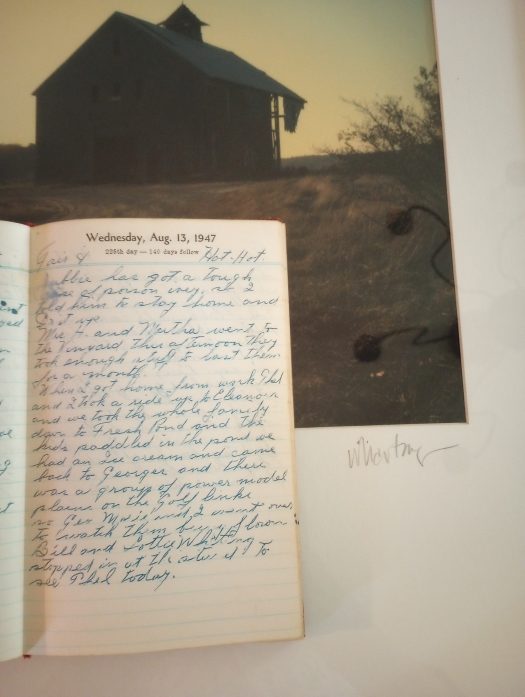 Wednesday, Aug. 13, 1947
225th day — 140 days follow
Fair & Hot-Hot
Bubbie has got a tough
case of poison ivey, so I
told him to stay home and
rest up.
Mr H and Martha went to
the vinyard this afternoon they
took enough stuff to last them
for a month.
When I got home from work Phil
and I took a ride up to Eleanor
and we took the whole family
down to Fresh Pond and the
kids paddled in the pond we
had an Ice cream and came
back to Georges and there
was a group of power model
plains on the Golf links
so Geo and I went over
to watch them being flown.
Bill and Lottie Whiting
stopped in at the store to
see Phil today.